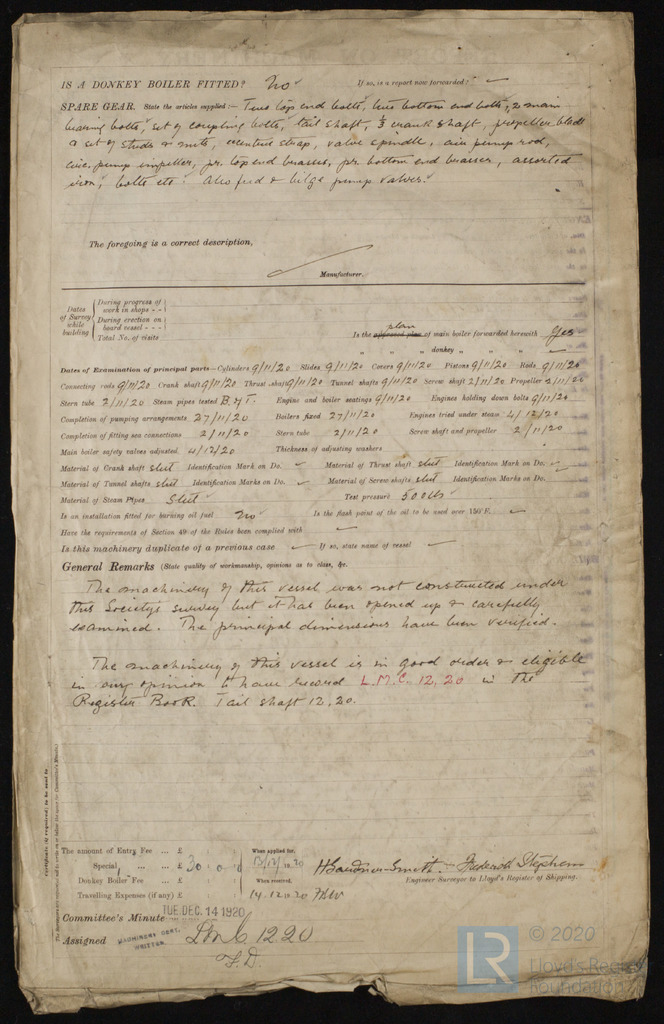 IS A DONKEY BOILER FITTED? No If so, is a report now forwarded?
SPARE GEAR. State the articles supplied:— Two top end bolts, two bottom end bolts, 2 main
bearing bolts, set of coupling bolts, tail shaft, 1/3 crank shaft, propeller blade
& set of studs & nuts, eccentric strap, valve spindle, air pump rod,
circ. pump impeller, pr. top end brasses, pr. bottom end brasses, assorted
iron, bolts etc. Also feed & bilge pump valves.
The foregoing is a correct description,
Manufacturer.
Dates of Survey while building
During progress of work in shops - -
During erection on board vessel - - -
Total No. of visits
Is the approved plan plan of main boiler forwarded herewith Yes
" " " donkey " "
Dates of Examination of principal parts—Cylinders 9/11/20 Slides 9/11/20 Covers 9/11/20 Pistons 9/11/20 Rods 9/11/20
Connecting rods 9/11/20 Crank shaft 9/11/20 Thrust shaft 9/11/20 Tunnel shafts 9/11/20 Screw shaft 2/11/20 Propeller 2/11/20
Stern tube 2/11/20 Steam pipes tested B of T. Engine and boiler seatings 9/11/20 Engines holding down bolts 9/11/20
Completion of pumping arrangements 27/11/20 Boilers fixed 27/11/20 Engines tried under steam 4/12/20
Completion of fitting sea connections 2/11/20 Stern tube 2/11/20 Screw shaft and propeller 2/11/20
Main boiler safety valves adjusted 4/12/20 Thickness of adjusting washers
Material of Crank shaft Steel Identification Mark on Do. Material of Thrust shaft Steel Identification Mark on Do.
Material of Tunnel shafts Steel Identification Marks on Do. Material of Screw shafts Steel Identification Marks on Do.
Material of Steam Pipes Steel Test pressure 500 lbs
Is an installation fitted for burning oil fuel No Is the flash point of the oil to be used over 150°F.
Have the requirements of Section 49 of the Rules been complied with
Is this machinery duplicate of a previous case If so, state name of vessel
General Remarks (State quality of workmanship, opinions as to class, &c.
The machinery of this vessel was not constructed under
this Societys survey but it has been opened up & carefully
examined. The principal dimensions have been verified.
The machinery of this vessel is in good order & eligible
in my opinion to have record L.M.C. 12,20 in the
Register Book. Tail shaft 12,20.
Certificate (if required) to be sent to
The amount of Entry Fee ... £
Special ... ... £ 30 . 0 . 0
Donkey Boiler Fee ... £
Travelling Expenses (if any) £
When applied for,
13/12/1920
When received,
14.12.1920
H Gardner-Smith. Frederick Stephen
Engineer Surveyor to Lloyd's Register of Shipping.
Committee's Minute TUE. DEC. 14 1920
Assigned LMC 12 20
F.D.
MACHINERY CERT. WRITTEN.
LR © 2020
Lloyd's Register
Foundation